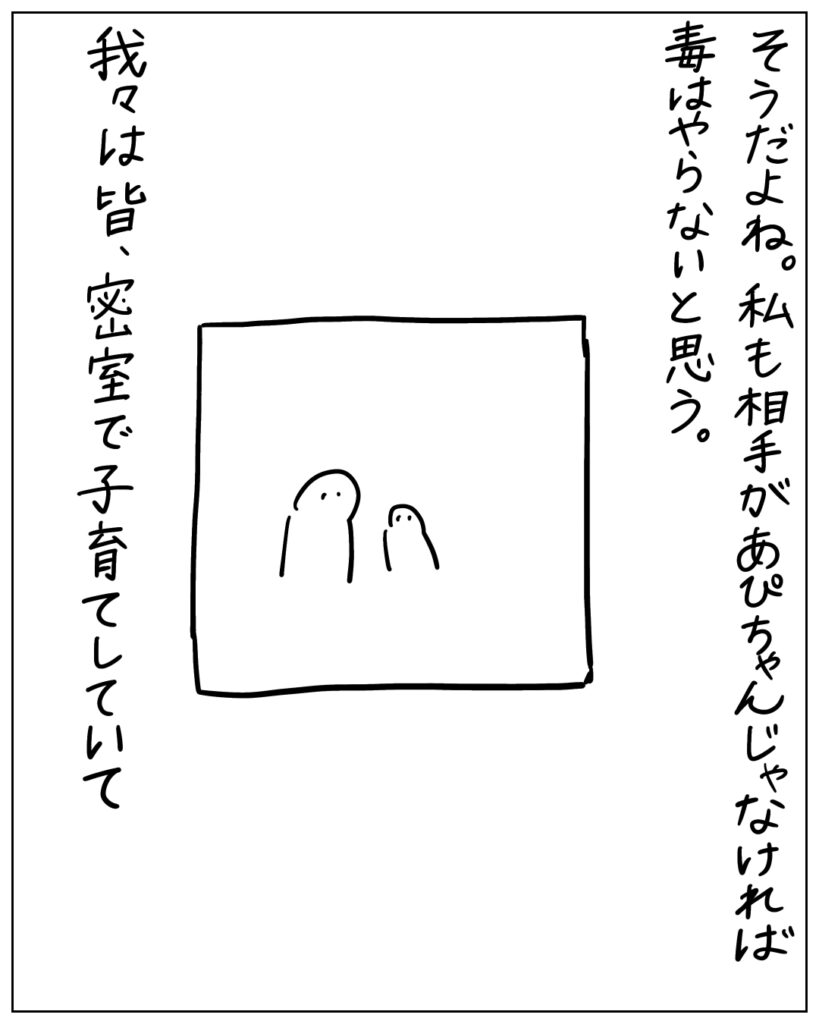 そうだよね。私も相手があぴちゃんじゃなければ
毒はやらないと思う。
我々は皆、密室で子育てしていて